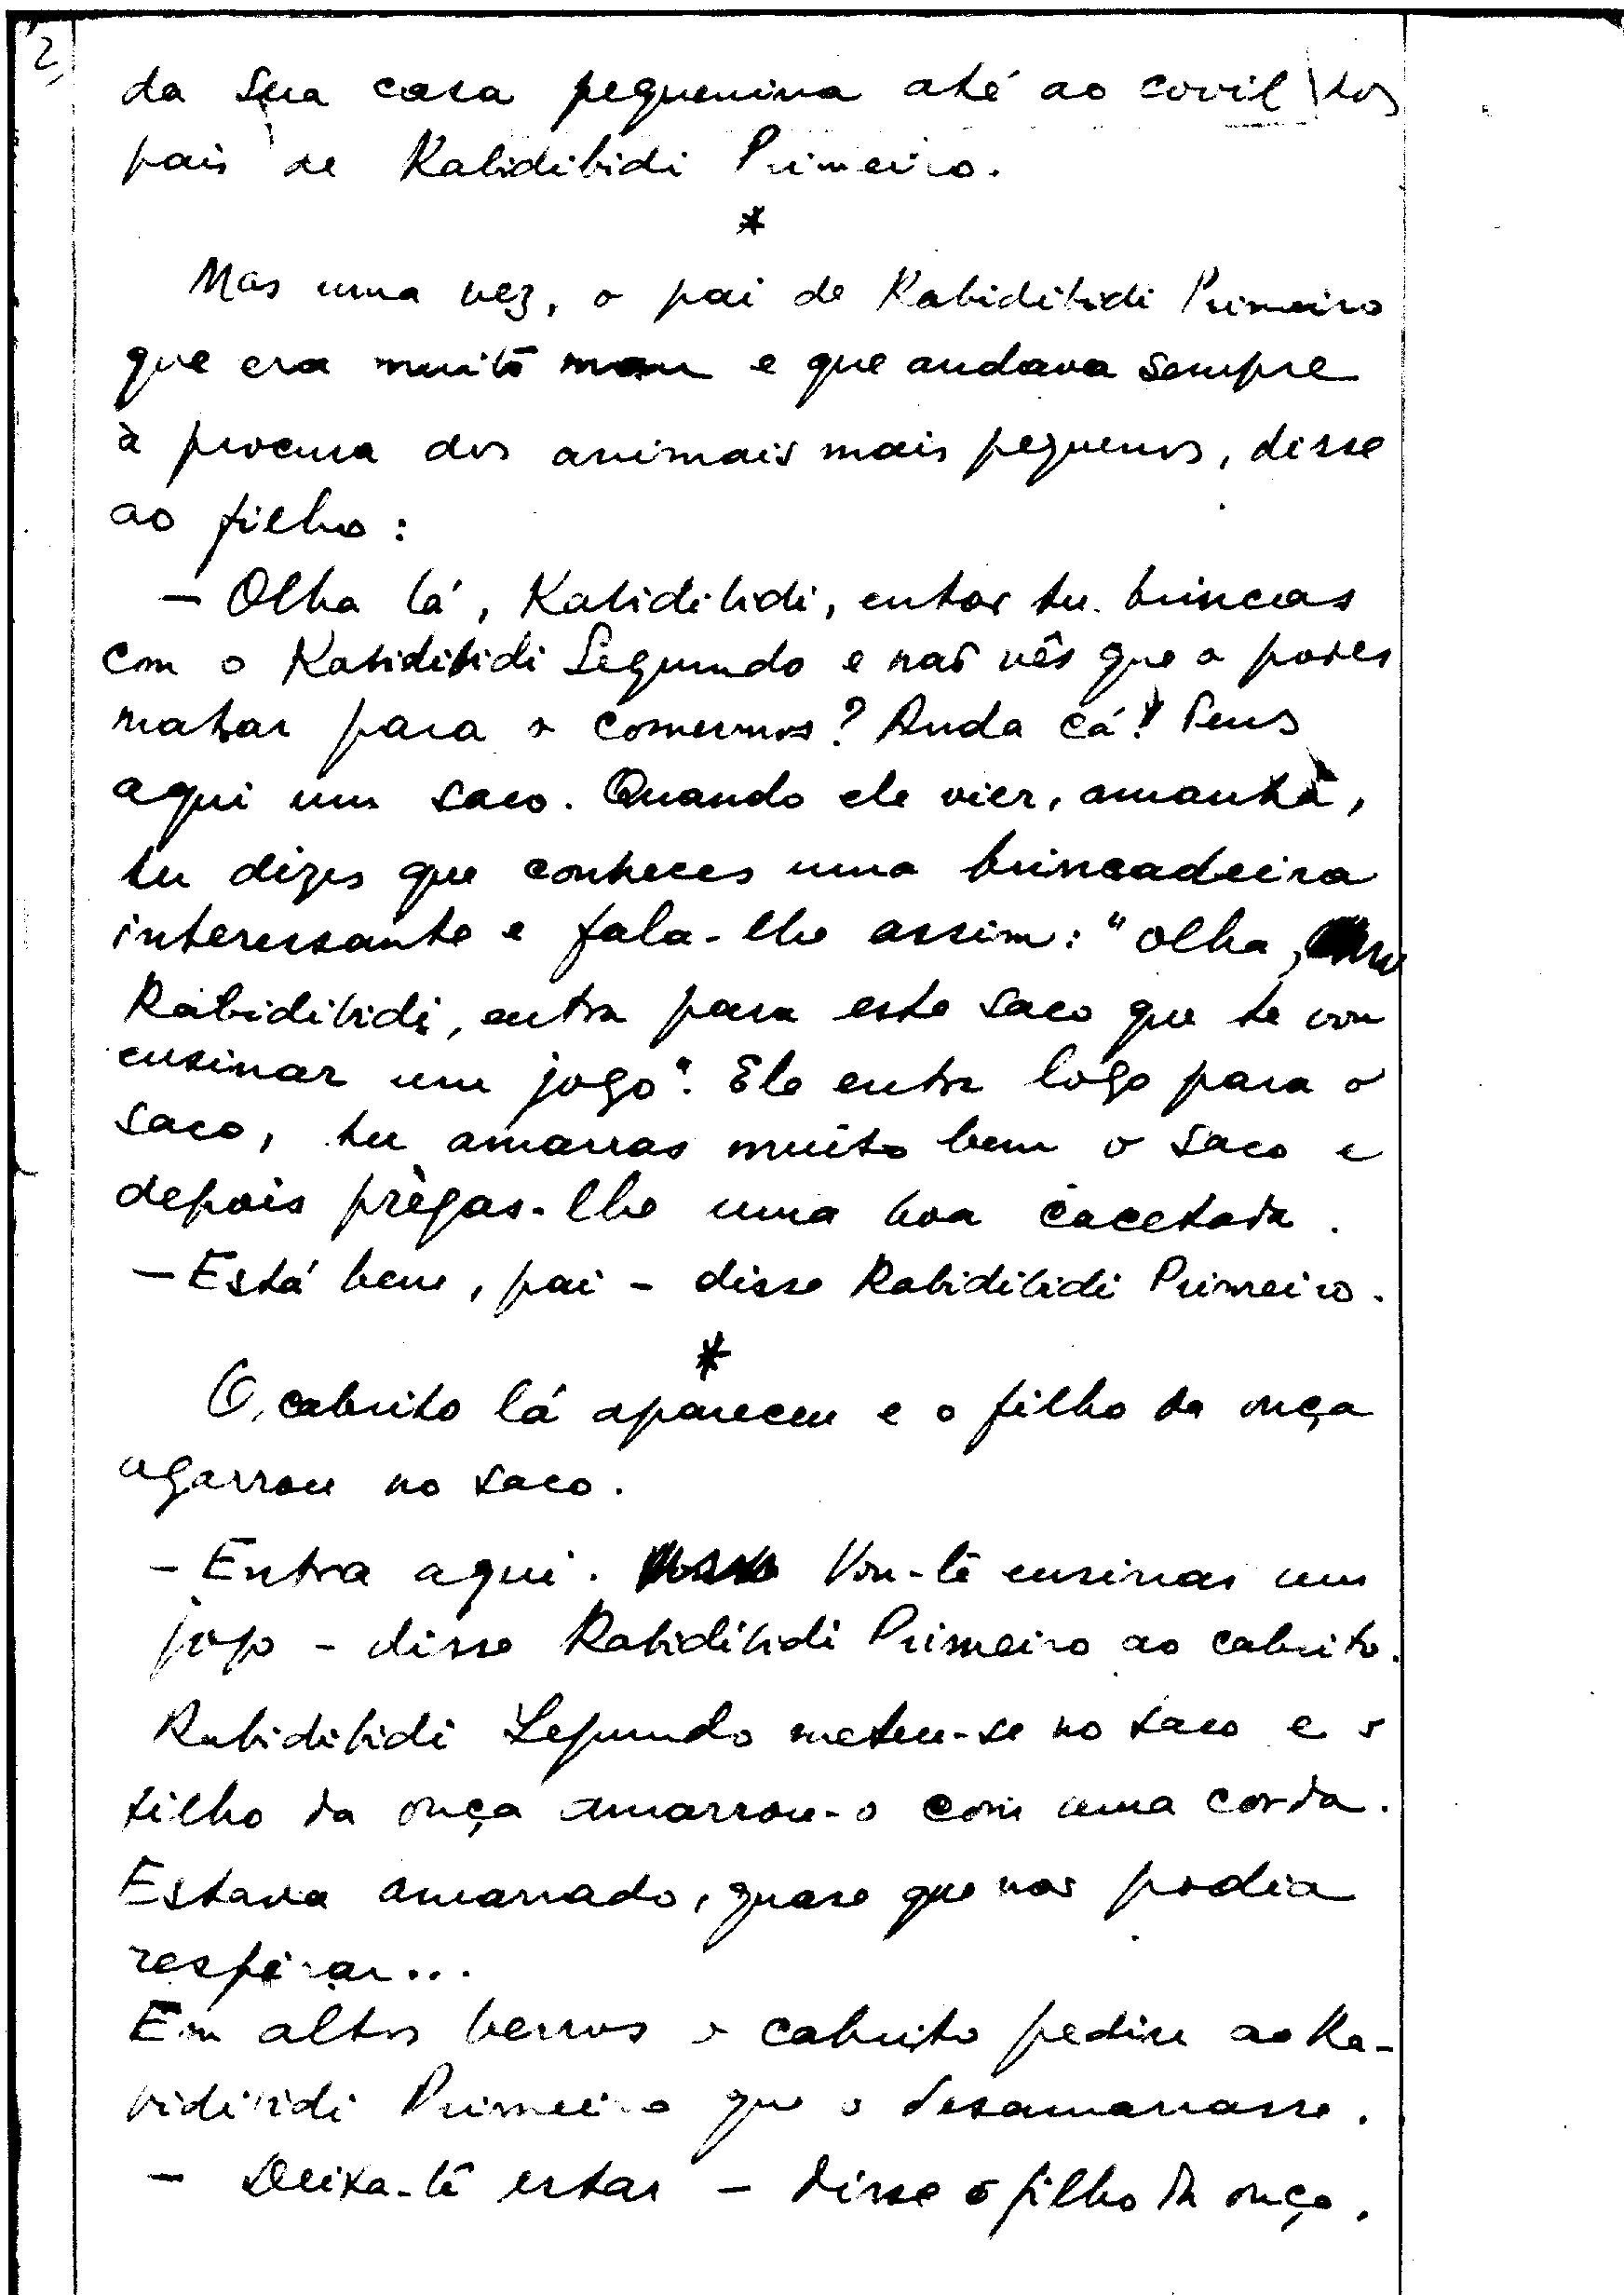 2,
da sua casa pequenina até ao covil dos
pais de Kabidibidi Primeiro.
*
Mas uma vez, o pai de Kabidibidi Primeiro
que era muito mau e que andava sempre
à procura dos animais mais pequenos, disse
ao filho:
— Olha lá, Kabidibidi, então tu brincas
com o Kabidibidi Segundo e não vês que o podes
matar para o comermos? Anda cá! Tens
aqui um saco. Quando ele vier, amanhã,
tu dizes que conheces uma brincadeira
interessante e fala-lhe assim: "olha,
Kabidibidi, entra para este saco que te vou
ensinar um jogo". Ele entra logo para o
saco, tu amarras muito bem o saco e
depois prègas-lhe uma boa cacetada.
— Está bem, pai — disse Kabidibidi Primeiro.
*
O cabrito lá apareceu e o filho da onça
agarrou no saco.
— Entra aqui. Vou-te ensinar um
jogo — disse Kabidibidi Primeiro ao cabrito.
Kabidibidi Segundo meteu-se no saco e o
filho da onça amarrou-o com uma corda.
Estava amarrado, quase que não podia
respirar...
Em altos berros o cabrito pediu ao Ka-
bidibidi Primeiro que o desamarrasse.
— Deixa-te estar — disse o filho da onça.